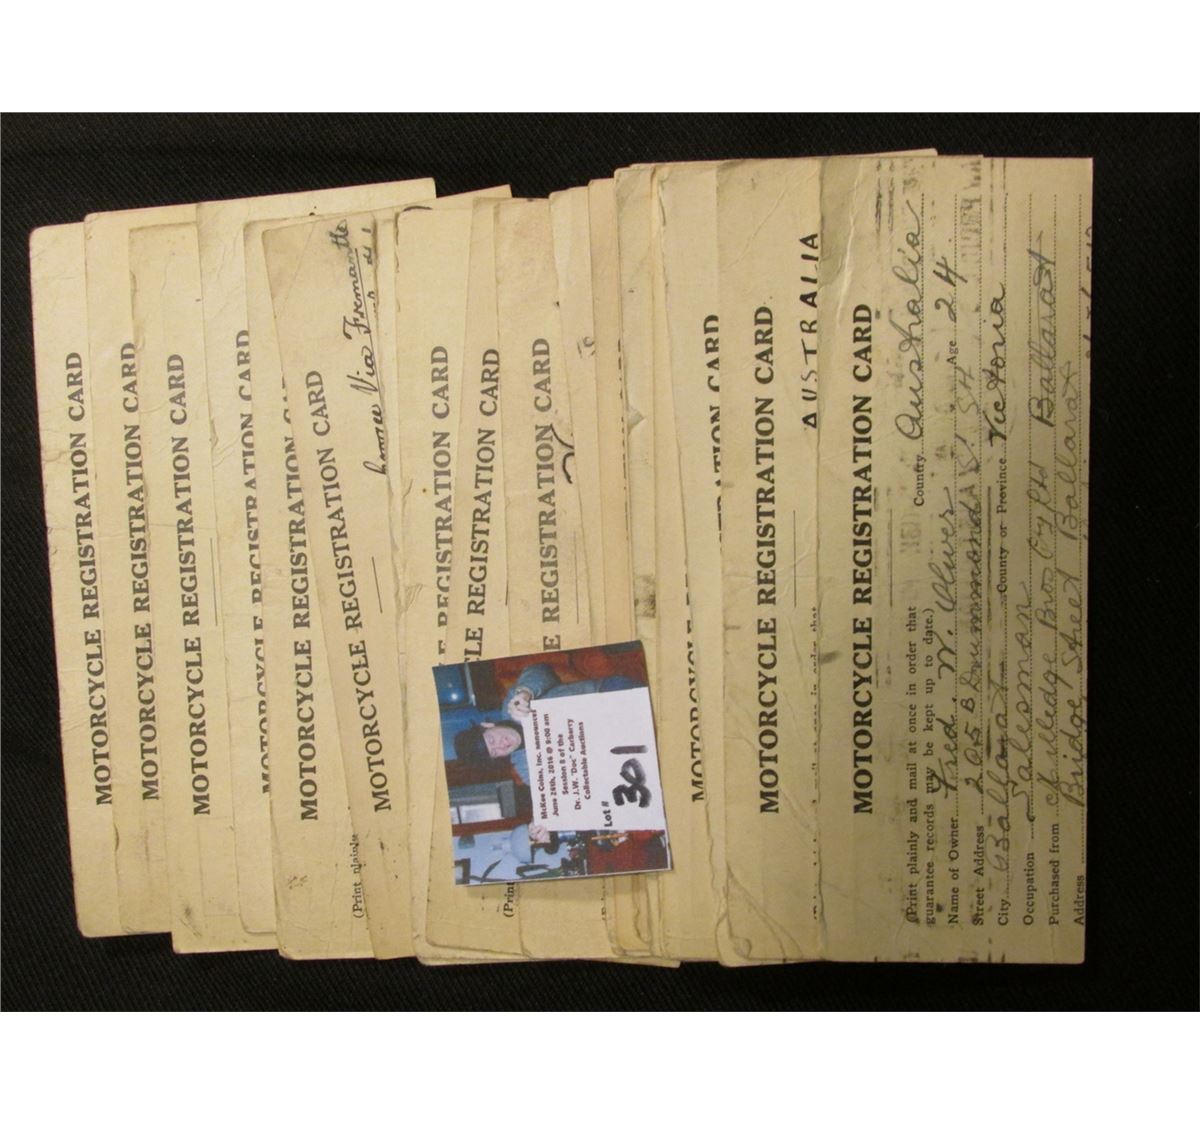 MOTORCYCLE REGISTRATION CARD
MOTORCYCLE REGISTRATION CARD
MOTORCYCLE REGISTRATION CARD
MOTORCYCLE REGISTRATION CARD
MOTORCYCLE REGISTRATION CAR
(Print plainly
MOTORCYCLE REGISTRATION CARD
Via Fremantle
MOTORCYCLE REGISTRATION CARD
LE REGISTRATION CARD
(Print
LE REGISTRATION CARD
To
McKee Coins, Inc. announces
June 26th, 2016 @ 9:00 am
Session II of the
Dr. J.W. "Doc" Carberry
Collectable Auctions
Lot # 301
MOTORCYCLE REGISTRATION CARD
MOTORCYCLE REGISTRATION CARD
AUSTRALIA
in order that
MOTORCYCLE REGISTRATION CARD
(Print plainly and mail at once in order that
guarantee records may be kept up to date.)
Country Australia
Name of Owner Fred W. Oliver Age 24
Street Address 205 B Drummond St. Sth
City Ballarat County or Province Victoria
Occupation Salesman
Purchased from Bros Cycles Ballarat
Address Bridge Street Ballarat